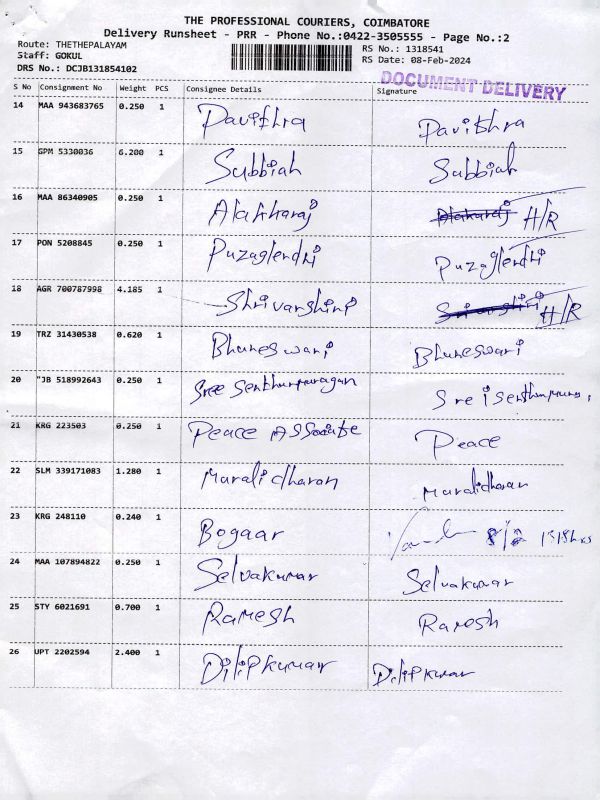 THE PROFESSIONAL COURIERS, COIMBATORE
Delivery Runsheet - PRR - Phone No.:0422-3505555 - Page No.:2
Route: THETHEPALAYAM
Staff: GOKUL
DRS No.: DCJB131854102
RS No.: 1318541
RS Date: 08-Feb-2024
DOCUMENT DELIVERY
S No Consignment No Weight PCS Consignee Details Signature
14 MAA 943683765 0.250 1 Pavithra Pavithra
15 GPM 5330036 6.200 1 Subbiah Subbiah
16 MAA 86340905 0.250 1 Alakharaj Alakuraj H/R
17 PON 5208845 0.250 1 Puzaglendhi Puzaglendhi
18 AGR 700787998 4.185 1 Shrivarshini H/R
19 TRZ 31430538 0.620 1 Bhuneswari Bhuneswari
20 "JB 518992643 0.250 1 Sree Senthurmurugan Sree
21 KRG 223503 0.250 1 Peace Associate Peace
22 SLM 339171083 1.280 1 Muralidharan Muralidharan
23 KRG 248110 0.240 1 Bogaar
24 MAA 107894822 0.250 1 Selvakumar Selvakumar
25 STY 6021691 0.700 1 Ramesh Ramesh
26 UPT 2202594 2.400 1 Dilipkumar Dilipkumar